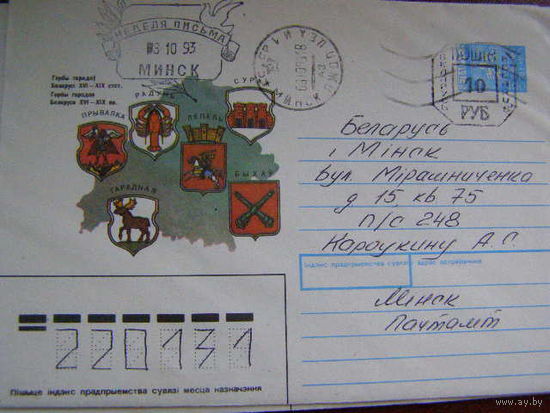 НЕДЕЛЯ ПИСЬМА
03 10 93
МИНСК
МІНСК
ПОШТА
10
РУБ
Гербы гарадоў
Беларусі XVI–XIX стст.
Гербы городов
Беларуси XVI–XIX вв.
РАДУНЬ
СУРАЖ
ПРЫВАЛКА
ЛЕПЕЛЬ
ГАРАДНАЯ
БЫХАЎ
Беларусь
г Мінск
вул. Мірашниченка
д 15 кв 75
п/с 248
Кароукину А. С.
Індэкс прадпрыемства сувязі
Адрас адпраўніка
Мінск
Паштамт
220131
Пішыце індэкс прадпрыемства сувязі месца назначэння
www.ay.by